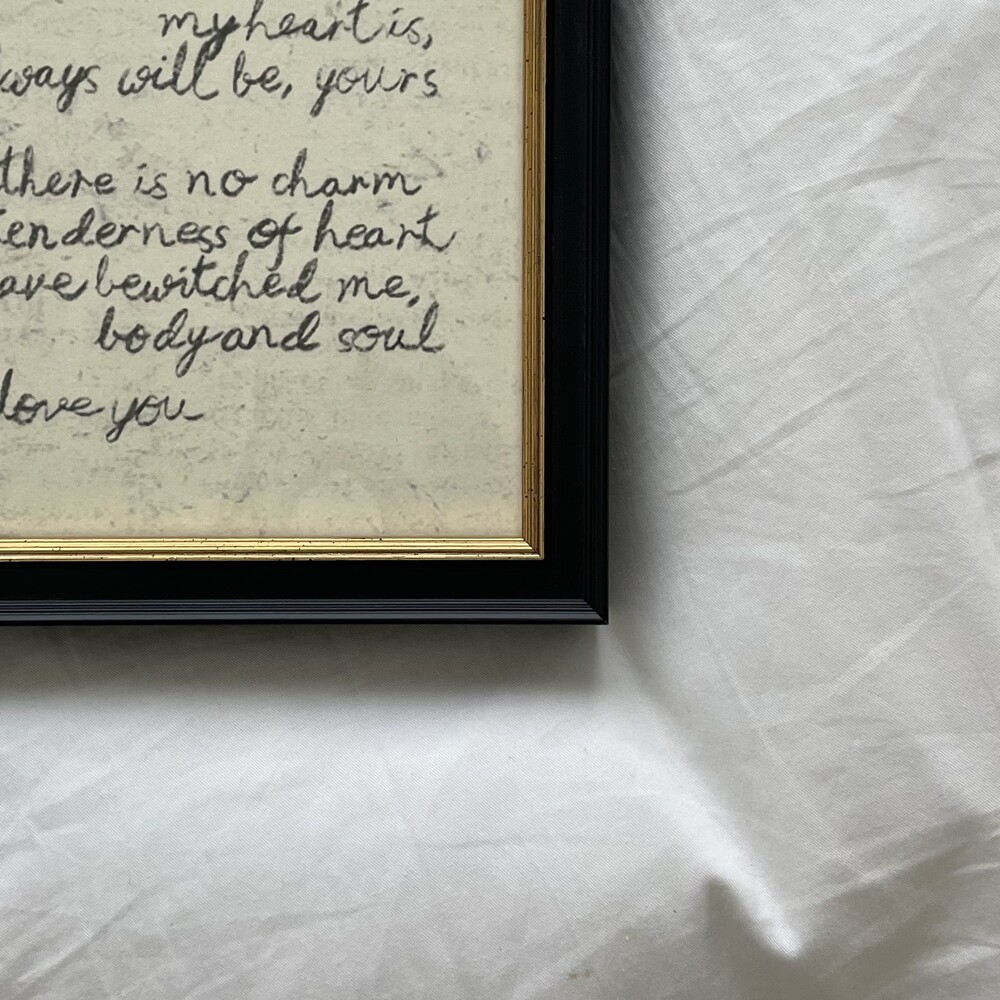 my heart is,
ways will be, yours
there is no charm
tenderness of heart
ave bewitched me,
body and soul
love you